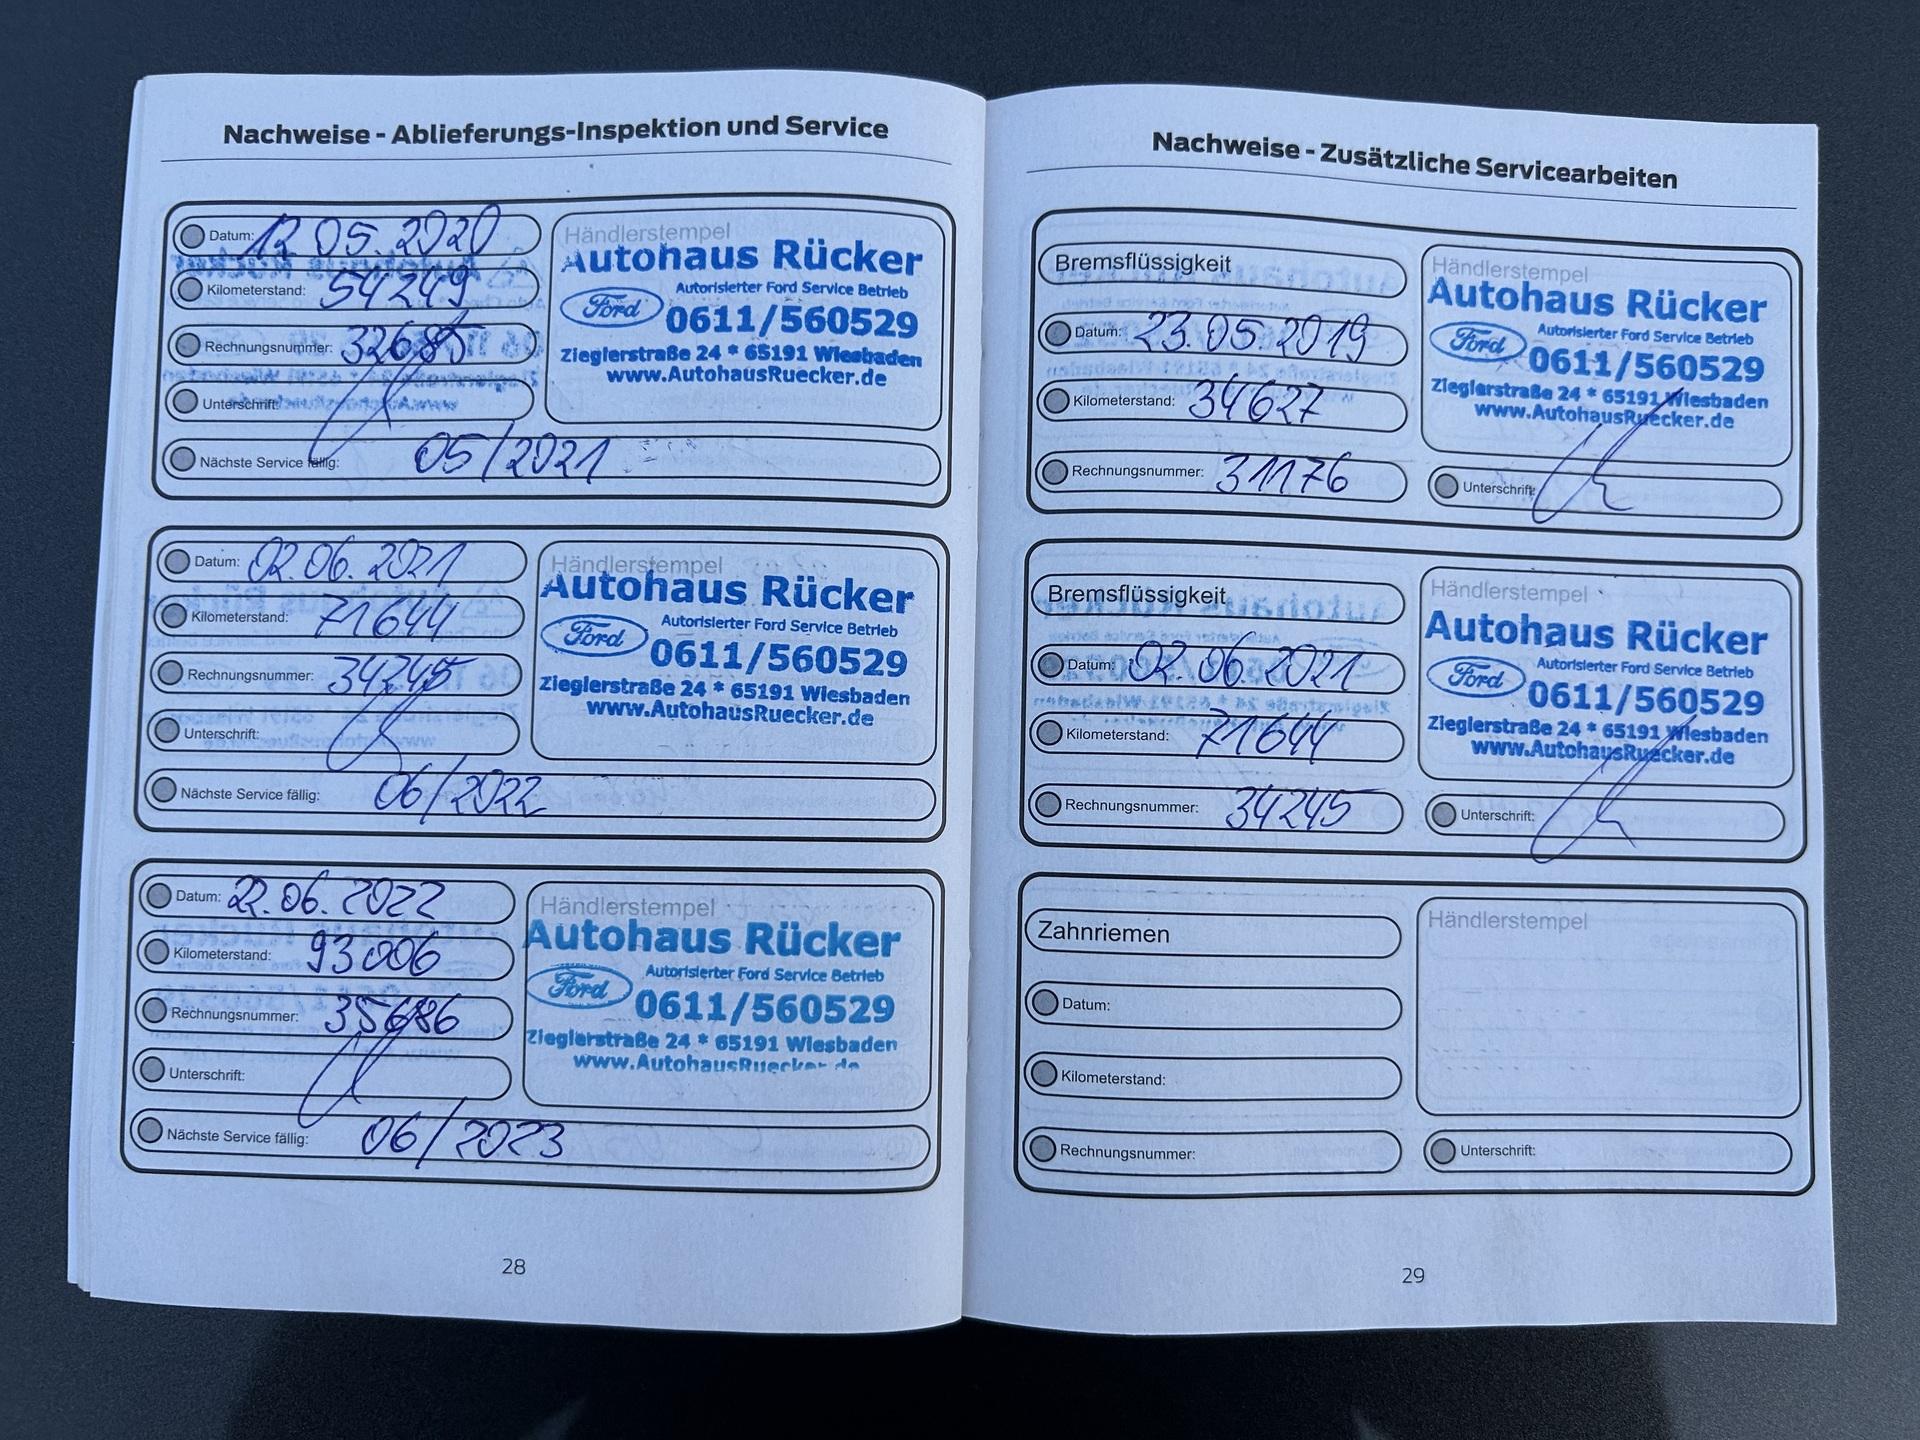 Nachweise - Ablieferungs-Inspektion und Service
Datum: 12.05.2020
Kilometerstand: 54249
Rechnungsnummer: 32685
Unterschrift:
Nächste Service fällig: 05/2021
Händlerstempel
Autohaus Rücker
Autorisierter Ford Service Betrieb
Ford
0611/560529
Zieglerstraße 24 * 65191 Wiesbaden
www.AutohausRuecker.de
Datum: 02.06.2021
Kilometerstand: 71644
Rechnungsnummer: 34245
Unterschrift:
Nächste Service fällig: 06/2022
Händlerstempel
Autohaus Rücker
Autorisierter Ford Service Betrieb
Ford
0611/560529
Zieglerstraße 24 * 65191 Wiesbaden
www.AutohausRuecker.de
Datum: 22.06.2022
Kilometerstand: 93006
Rechnungsnummer: 35686
Unterschrift:
Nächste Service fällig: 06/2023
Händlerstempel
Autohaus Rücker
Autorisierter Ford Service Betrieb
Ford
0611/560529
Zieglerstraße 24 * 65191 Wiesbaden
www.AutohausRuecker.de
28
Nachweise - Zusätzliche Servicearbeiten
Bremsflüssigkeit
Datum: 23.05.2019
Kilometerstand: 34627
Rechnungsnummer: 31176
Händlerstempel
Autohaus Rücker
Autorisierter Ford Service Betrieb
Ford
0611/560529
Zieglerstraße 24 * 65191 Wiesbaden
www.AutohausRuecker.de
Unterschrift:
Bremsflüssigkeit
Datum: 02.06.2021
Kilometerstand: 71644
Rechnungsnummer: 34245
Händlerstempel
Autohaus Rücker
Autorisierter Ford Service Betrieb
Ford
0611/560529
Zieglerstraße 24 * 65191 Wiesbaden
www.AutohausRuecker.de
Unterschrift:
Zahnriemen
Datum:
Kilometerstand:
Rechnungsnummer:
Händlerstempel
Unterschrift:
29